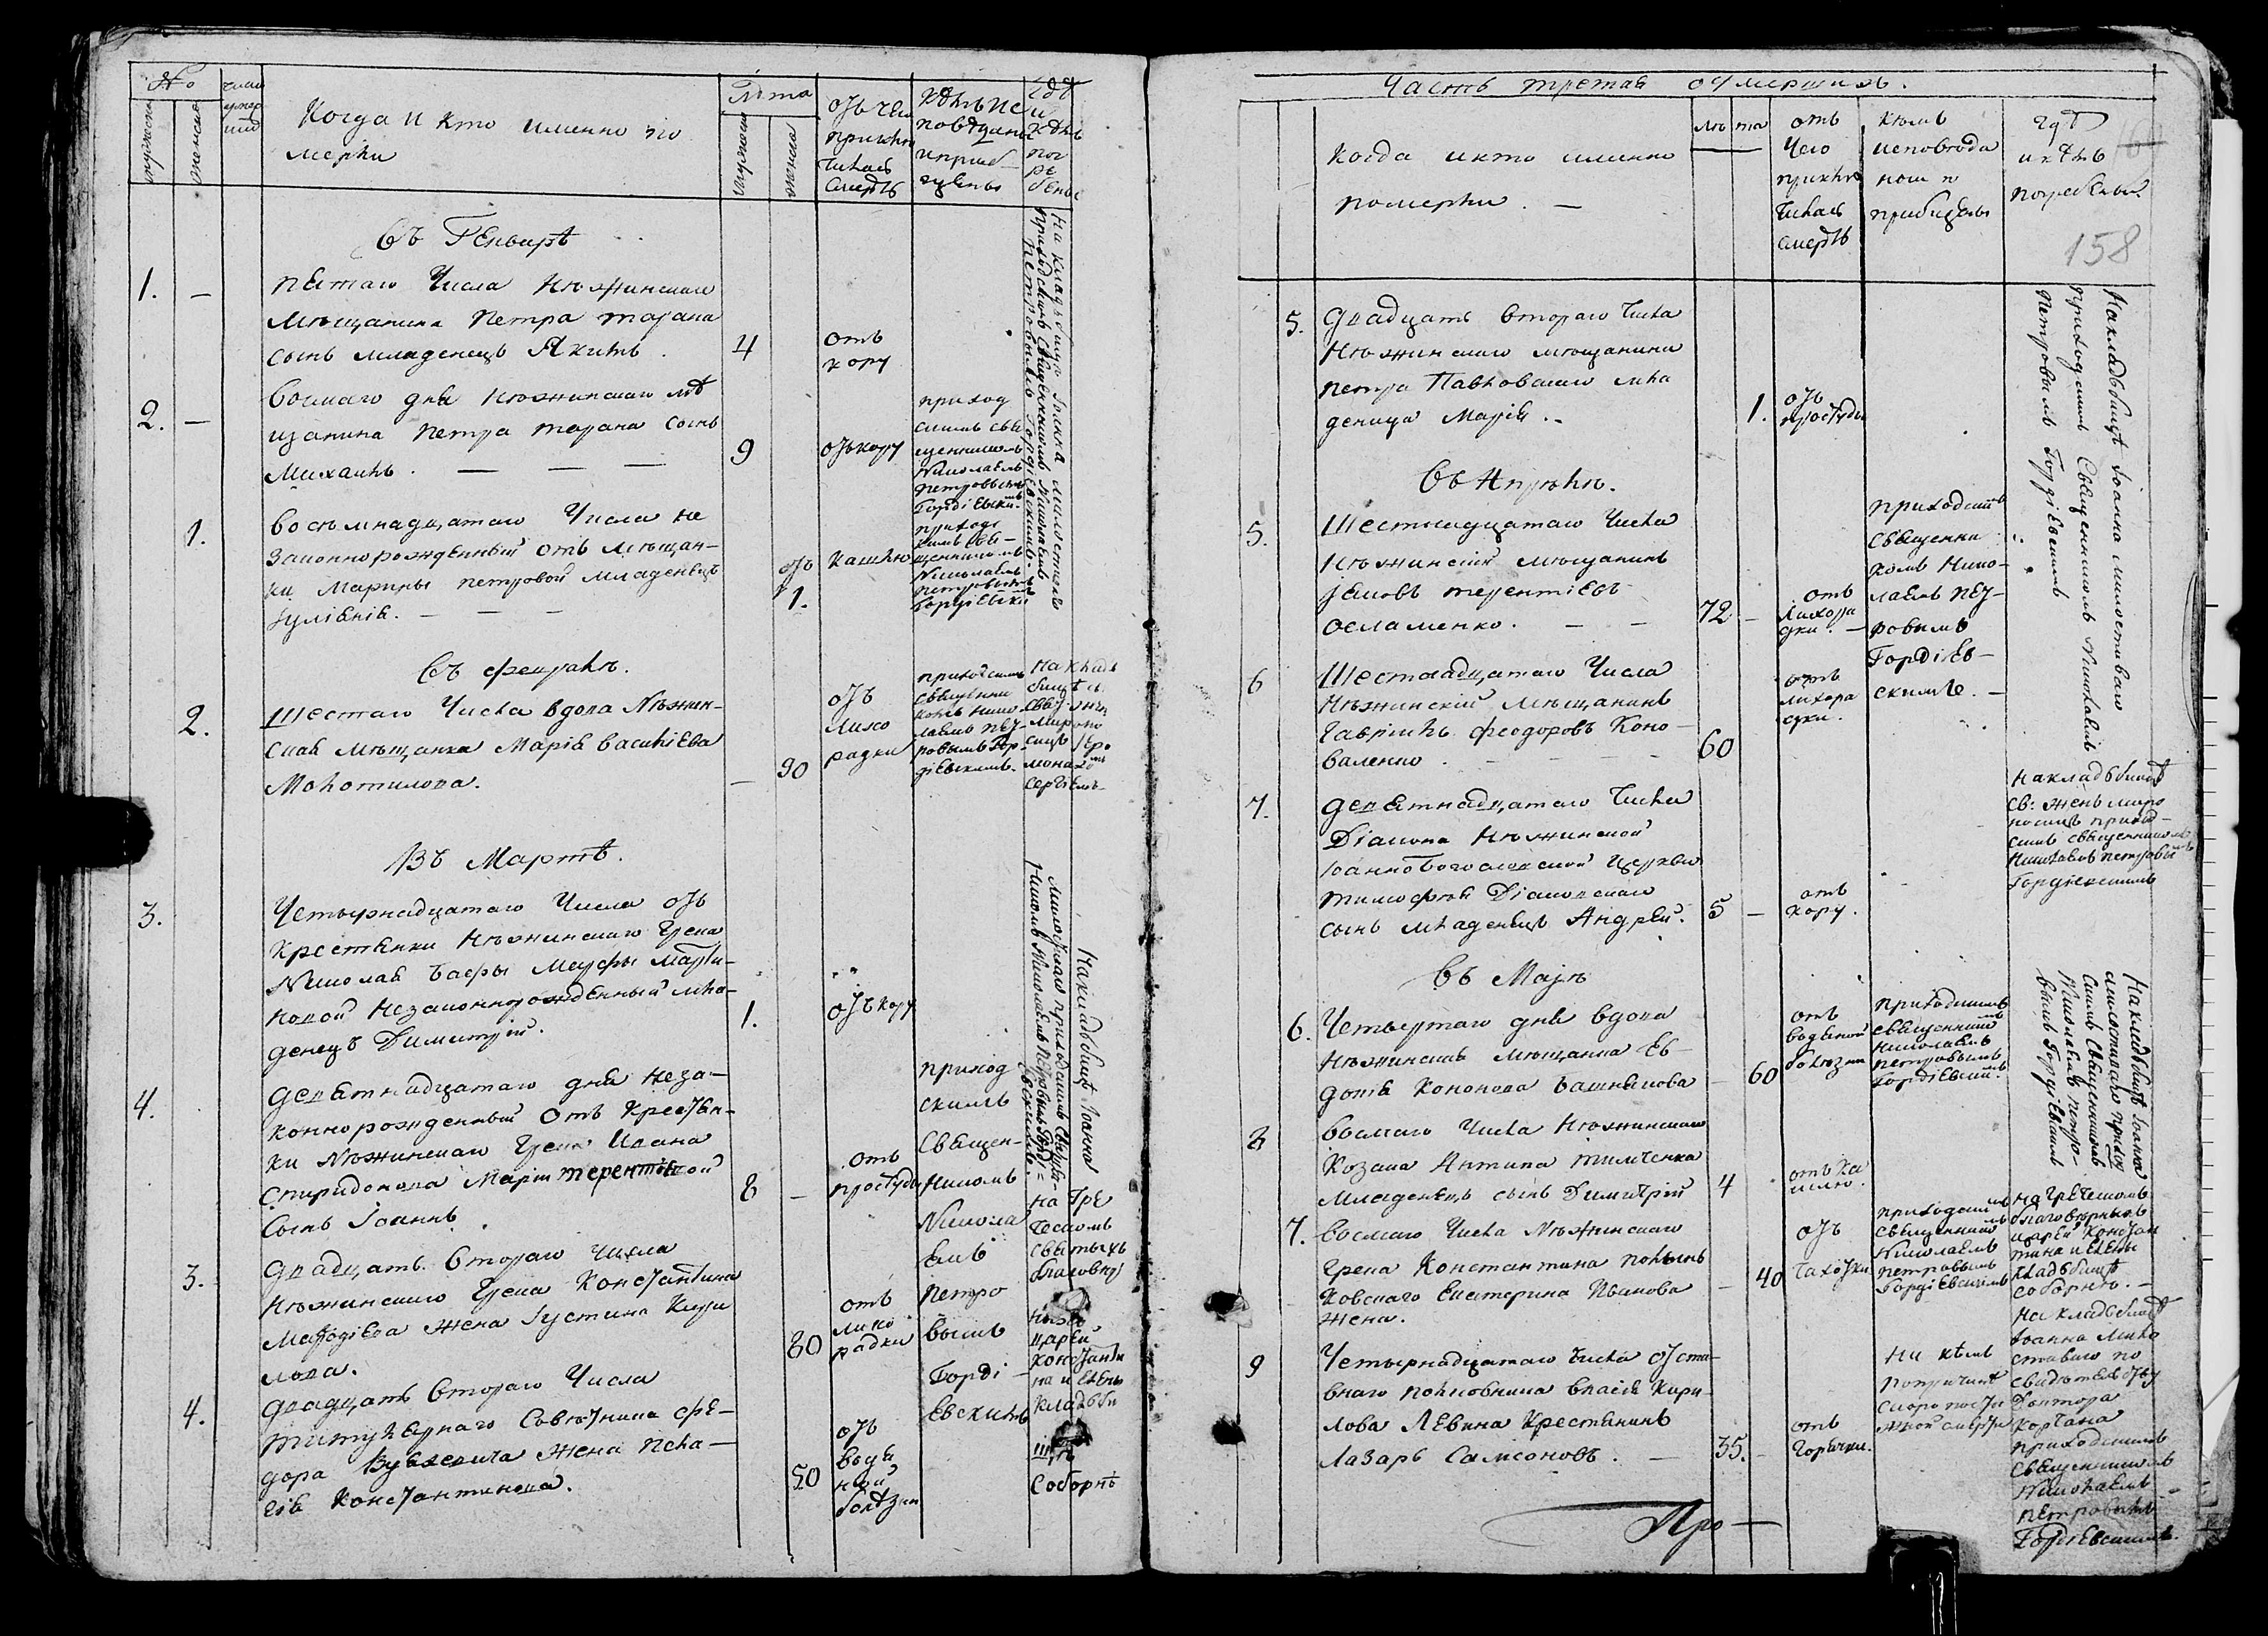 №
число
умер
ших
мужеска
женска
Когда и кто именно по
мерли
Лѣта
мужеска
женска
отъ чего
приклю
чилась
смерть
Кѣмъ ис
повѣдани
и приоб
щены
Гдѣ
и
кѣмъ
пог
ре
бены
Въ Генварѣ
1. —
пятаго Числа Нѣжинскаго
мѣщанина Петра тарана
сынъ младенецъ Якимъ.
4
отъ
кору
2. —
восмаго дня нѣжинскаго мѣ
щанина Петра тарана сынъ
Михаилъ. — — —
9
отъ кору
приход
скимъ свя
щенникомъ
Николаемъ
Петровымъ
Гордіевски.
1.
восѣмнадцатаго Числа не
законнорожденный отъ мѣщан-
ки Марины петровой младенецъ
Іуліянія. — — —
1.
отъ Кашлю
приходс
кимъ свя-
щенникомъ
Николаемъ
петровымъ
Гордіевски
На кладбищѣ Іоанна милостиваго
приходскимъ священникомъ Николаемъ
Петровымъ Гордіевскимъ.
Въ февралѣ.
2.
Шестаго Числа вдова Нѣжин-
ская мѣщанка Марія василіева
Молотилова.
— 90
отъ
лихо
радки
приходскимъ
священни
комъ Нико
лаемъ пет-
ровымъ Гор-
діевскимъ.
На клад
бищѣ с.
свят. жен
мироно
сицъ іеро
монахомъ
Сергіемъ
Въ Мартѣ.
3.
Четырнадцатаго Числа отъ
Крестянки Нѣжинскаго Грека
Николая Бафы Марфы Марти-
новой Незаконнорожденный мла-
денецъ Димитрій.
1.
отъ кору
4.
Девятнадцатаго дня неза-
коннорожденный отъ Крестян-
ки Нѣжинскаго Грека Ивана
Спиридонова Маріи терентіевой
Сынъ Іоаннъ.
8 —
отъ
простуди
приход
скимъ
Священ-
никомъ
Никола
емъ
Петро
вымъ
Горді
евскимъ
На кладбищѣ Іоанна
Милостиваго приходскимъ Священ-
никомъ Николаемъ Петровымъ Горді=
евскимъ.
3.
Двадцать втораго Числа
Нѣжинскаго Грека Константина
Мафодіева жена Іустина Кири
лова.
80
отъ
лихо
радки
4.
Двадцать втораго Числа
титулярнаго Совѣтника фе-
дора жена пела-
гія Константинова.
50
отъ
водя
ной
болѣзни
на Гре
ческомъ
святыхъ
благовер
ныхъ
царей
Константи
на и Елены
кладби
щѣ
Соборнѣ
Часть третая о умершихъ.
158
Когда и кто именно
померли. —
лѣ та
отъ
Чего
приклю
чилась
смерть
кѣмъ
исповѣда
ны и
приобщены
гдѣ
и кѣмъ
погребены
5.
Двадцать втораго Числа
Нѣжинскаго мѣщанина
петра Павловскаго мла
деница Марія. -
1.
отъ
простуды
На кладбищѣ Іоанна милостиваго
приходскимъ Священникомъ Николаемъ
Петровымъ Гордіевскимъ
Въ Апрѣлѣ.
5.
Шестнадцатаго Числа
Нѣжинскій мѣщанинъ
Іяковъ терентіевъ
Осламенко. — —
72 —
отъ
Лихора
дки. —
приходскимъ
Священни
комъ Нико-
лаемъ пет-
ровымъ
Гордіев-
скимъ. —
6
Шестнадцатаго Числа
Нѣжинскій мѣщанинъ
Гавріилъ феодоровъ Коно-
валенко. — — — —
60
отъ
лихора
дки.
7.
Девятнадцатаго Числа
Діакона Нѣжинской
Іоанно Богословской Церкви
тимофея Діаковскаго
сынъ младенецъ Андрей.
5 —
отъ
кору.
На кладбищѣ
св: женъ миро
носицъ приход-
скимъ священникомъ
Николаемъ петровымъ
Гордіевскимъ
Въ Маіѣ
6.
Четвертаго дня вдова
Нѣжинская мѣщанка Ев-
докія Кононова Башнякова
— 60
отъ
водяной
болѣзни
приходскимъ
священникомъ
Николаемъ
петровымъ
Гордіевским.
На кладбищѣ Іоанна
милостиваго приход
скимъ Священникомъ
Николаемъ петро-
вымъ Гордіевскимъ
8
восмаго Числа Нѣжинскаго
Козака Антипа тимченка
младенецъ сынъ Димитрій
4
отъ ка
шлю.
7.
восмаго Числа Нѣжинскаго
Грека Константина
ковскаго Екатерина Иванова
жена.
— 40
отъ
Чахотки
приходскимъ
священникомъ
Николаемъ
петровымъ
Гордіевскимъ
на Греческомъ
благовѣрныхъ
царей Констан
тина и Елены
кладбищѣ
соборнѣ. —
9
Четырнадцатаго Числа отста-
внаго полковника власія Кири-
лова Левина Крестянинъ
Лазарь Самсоновъ. —
35. —
отъ
Горячки.
Ни кѣмъ
по причинѣ
скоропости
жной смерти
На кладбищѣ
Іоанна Мило
стиваго по
свидѣтельству
Доктора
Корбана
приходскимъ
Священникомъ
Николаемъ
петровымъ
Гордіевскимъ.
Про —